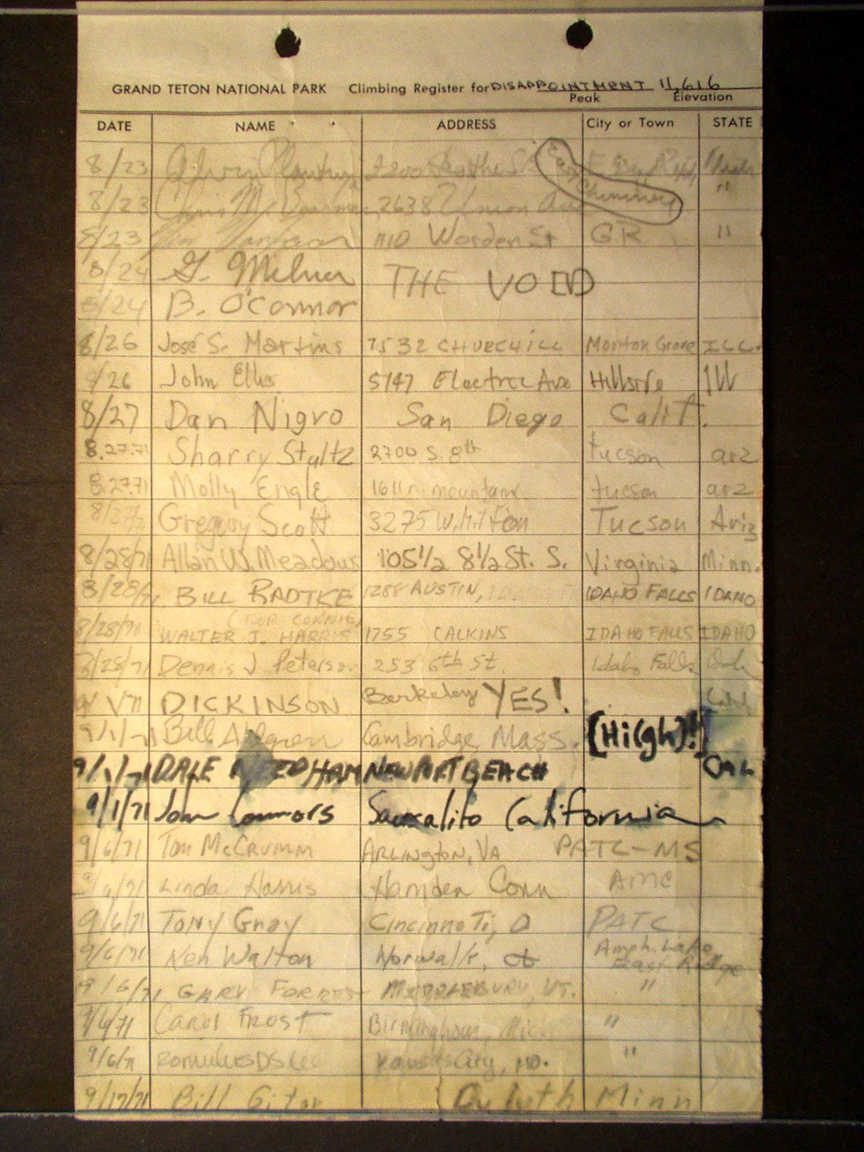 GRAND TETON NATIONAL PARK Climbing Register for DISAPPOINTMENT 11,616
Peak Elevation
DATE NAME ADDRESS City or Town STATE
8/23 2200 East
8/23 Chris M. 2638 Union Ave Chimney "
8/23 1110 Worden St GR "
8/24 G. Milner THE VOID
8/24 B. O'Connor
8/26 José S. Martins 7532 CHURCHILL Morton Grove ILL.
8/26 John Ellis 5147 Electric Ave Hillside Ill
8/27 Dan Nigro San Diego Calif.
8.27.71 Sharry Stultz 2700 S. 8th tucson arz
8.27.71 Molly Engle 1611 n. mountain tucson arz
8/27/71 Gregory Scott 3275 W. Milton Tucson Ariz
8/28/71 Allan W. Meadows 105 1/2 8 1/2 St. S. Virginia Minn.
8/28/71 BILL RADTKE 1288 AUSTIN, IDAHO FALLS IDAHO
(FOR CONNIE)
8/28/71 WALTER J. HARRIS 1755 CALKINS IDAHO FALLS IDAHO
8/28/71 Dennis J Peterson 253 6th St. Idaho Falls
DICKINSON Berkeley YES! Calif
9/1/71 Bill Ahlgren Cambridge Mass. (Hi(gh)!)
9/1/71 DALE NEEDHAM NEWPORT BEACH CAL
9/1/71 John Connors Sausalito California
9/6/71 Tom McCrumm ARLINGTON, VA PATC-MS
9/6/71 Linda Harris Hamden Conn AMC
9/6/71 Tony Gray Cincinnati, O PATC
9/6/71 Ken Walton Norwalk, Ct Amph. Lake
East Ridge
9/6/71 GARY FORREST MIDDLEBURY, VT. "
9/6/71 Carol Frost Birmingham, Mich "
9/6/71 Kansas City, MO. "
9/17/71 Bill Duluth Minn